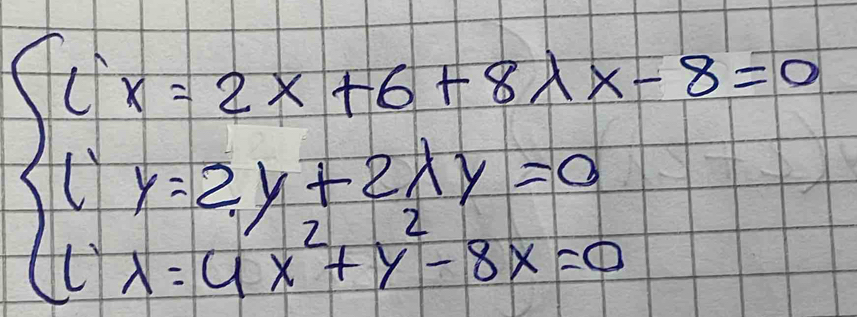 L'x = 2x + 6 + 8λx - 8 = 0
L'y = 2y + 2λy = 0
L'λ = 4x² + y² - 8x = 0